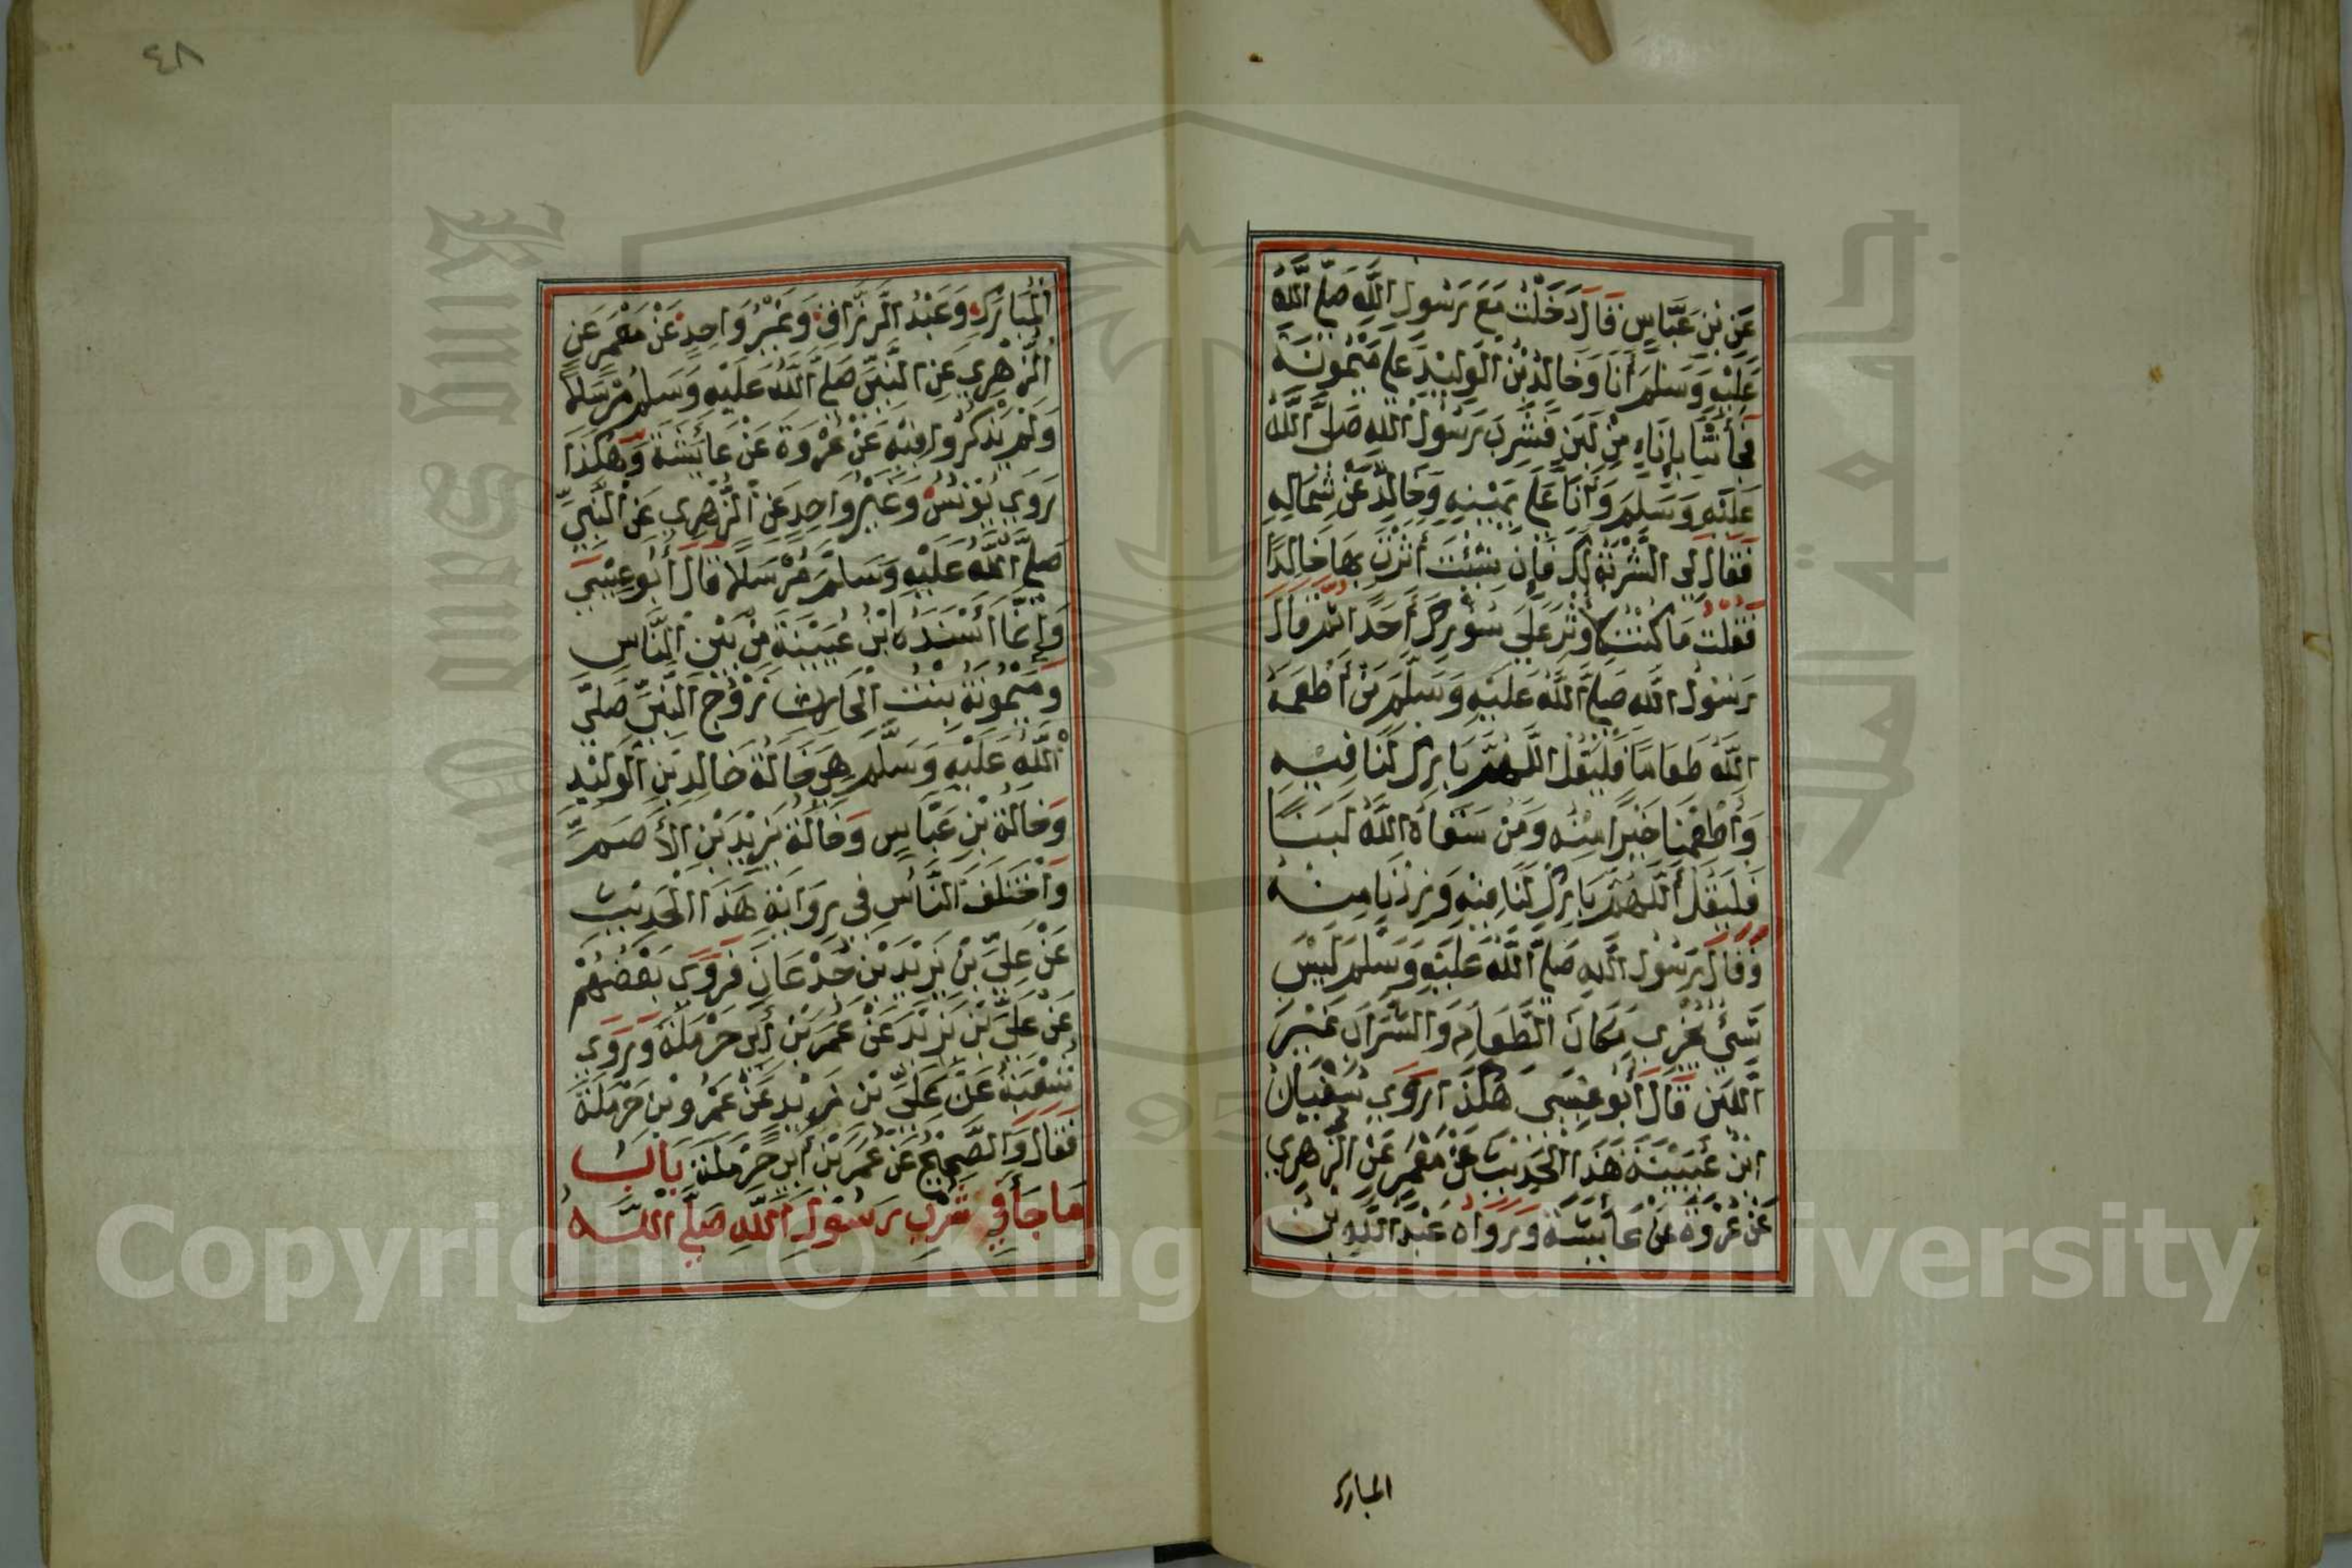 عَنِ بْنِ عَبَّاسٍ قَالَ دَخَلْتُ مَعَ رَسُولِ اللَّهِ صَلَّى اللَّهُ
عَلَيْهِ وَسَلَّمَ أَنَا وَخَالِدُ بْنُ الْوَلِيْدِ عَلَى مَيْمُونَةَ
فَجَأَتْنَا بِإِنَاءٍ مِنْ لَبَنٍ فَشَرِبَ رَسُولُ اللَّهِ صَلَّى اللَّهُ
عَلَيْهِ وَسَلَّمَ وَأَنَا عَلَى يَمِيْنِهِ وَخَالِدٌ عَنْ شِمَالِهِ
فَقَالَ لِي الشَّرْبَةُ لَكَ فَإِنْ شِئْتَ أَثَرْتَ بِهَا خَالِدًا
فَقُلْتُ مَا كُنْتُ لِأُوثِرَ عَلَى سُؤْرِكَ أَحَدًا ثُمَّ قَالَ
رَسُولُ اللَّهِ صَلَّى اللَّهُ عَلَيْهِ وَسَلَّمَ مَنْ أَطْعَمَهُ
اللَّهُ طَعَامًا فَلْيَقُلْ اللَّهُمَّ بَارِكْ لَنَا فِيْهِ
وَأَطْعِمْنَا خَيْرًا مِنْهُ وَمَنْ سَقَاهُ اللَّهُ لَبَنًا
فَلْيَقُلْ اللَّهُمَّ بَارِكْ لَنَا فِيْهِ وَزِدْنَا مِنْهُ
وَقَالَ رَسُولُ اللَّهِ صَلَّى اللَّهُ عَلَيْهِ وَسَلَّمَ لَيْسَ
شَيْءٌ يُجْزِي مَكَانَ الطَّعَامِ وَالشَّرَابِ غَيْرَ
اللَّبَنِ قَالَ أَبُو عِيْسَى هَكَذَا رَوَى سُفْيَانُ
ابْنُ عُيَيْنَةَ هَذَا الْحَدِيْثَ عَنْ مَعْمَرٍ عَنِ الزُّهْرِي
عَنْ عُرْوَةَ عَنْ عَائِشَةَ وَرَوَاهُ عَبْدُ اللَّهِ بْنُ
المبارك
٤٨
الْمُبَارَكِ وَعَبْدُ الرَّزَّاقِ وَغَيْرُ وَاحِدٍ عَنْ مَعْمَرٍ عَنِ
الزُّهْرِي عَنِ النَّبِيِّ صَلَّى اللَّهُ عَلَيْهِ وَسَلَّمَ مُرْسَلًا
وَلَمْ يَذْكُرُوا فِيْهِ عَنْ عُرْوَةَ عَنْ عَائِشَةَ وَهَكَذَا
رَوَى يُوْنُسُ وَغَيْرُ وَاحِدٍ عَنِ الزُّهْرِي عَنِ النَّبِيِّ
صَلَّى اللَّهُ عَلَيْهِ وَسَلَّمَ مُرْسَلًا قَالَ أَبُو عِيْسَى
وَإِنَّمَا أَسْنَدَهُ ابْنُ عُيَيْنَةَ مِنْ بَيْنِ النَّاسِ
وَمَيْمُونَةُ بِنْتُ الْحَارِثِ زَوْجُ النَّبِيِّ صَلَّى
اللَّهُ عَلَيْهِ وَسَلَّمَ هِيَ خَالَةُ خَالِدِ بْنِ الْوَلِيْدِ
وَخَالَةُ بْنِ عَبَّاسٍ وَخَالَةُ يَزِيْدَ بْنِ الْأَصَمِّ
وَاخْتَلَفَ النَّاسُ فِي رِوَايَةِ هَذَا الْحَدِيْثِ
عَنْ عَلِيِّ بْنِ يَزِيْدَ بْنِ جُدْعَانَ فَرَوَى بَعْضُهُمْ
عَنْ عَلِيِّ بْنِ يَزِيْدَ عَنْ عُمَرَ بْنِ أَبِي حَرْمَلَةَ وَرَوَى
شُعْبَةُ عَنْ عَلِيِّ بْنِ يَزِيْدٍ عَنْ عَمْرِو بْنِ حَرْمَلَةَ
فَقَالَ وَالصَّحِيْحُ عَنْ عُمَرَ بْنِ أَبِي حَرْمَلَةَ بَابُ
مَا جَأَ فِي شُرْبِ رَسُوْلِ اللَّهِ صَلَّى اللَّهُ
Copyright © King Saud University
King Saud University
جامعة الملك سعود
1957